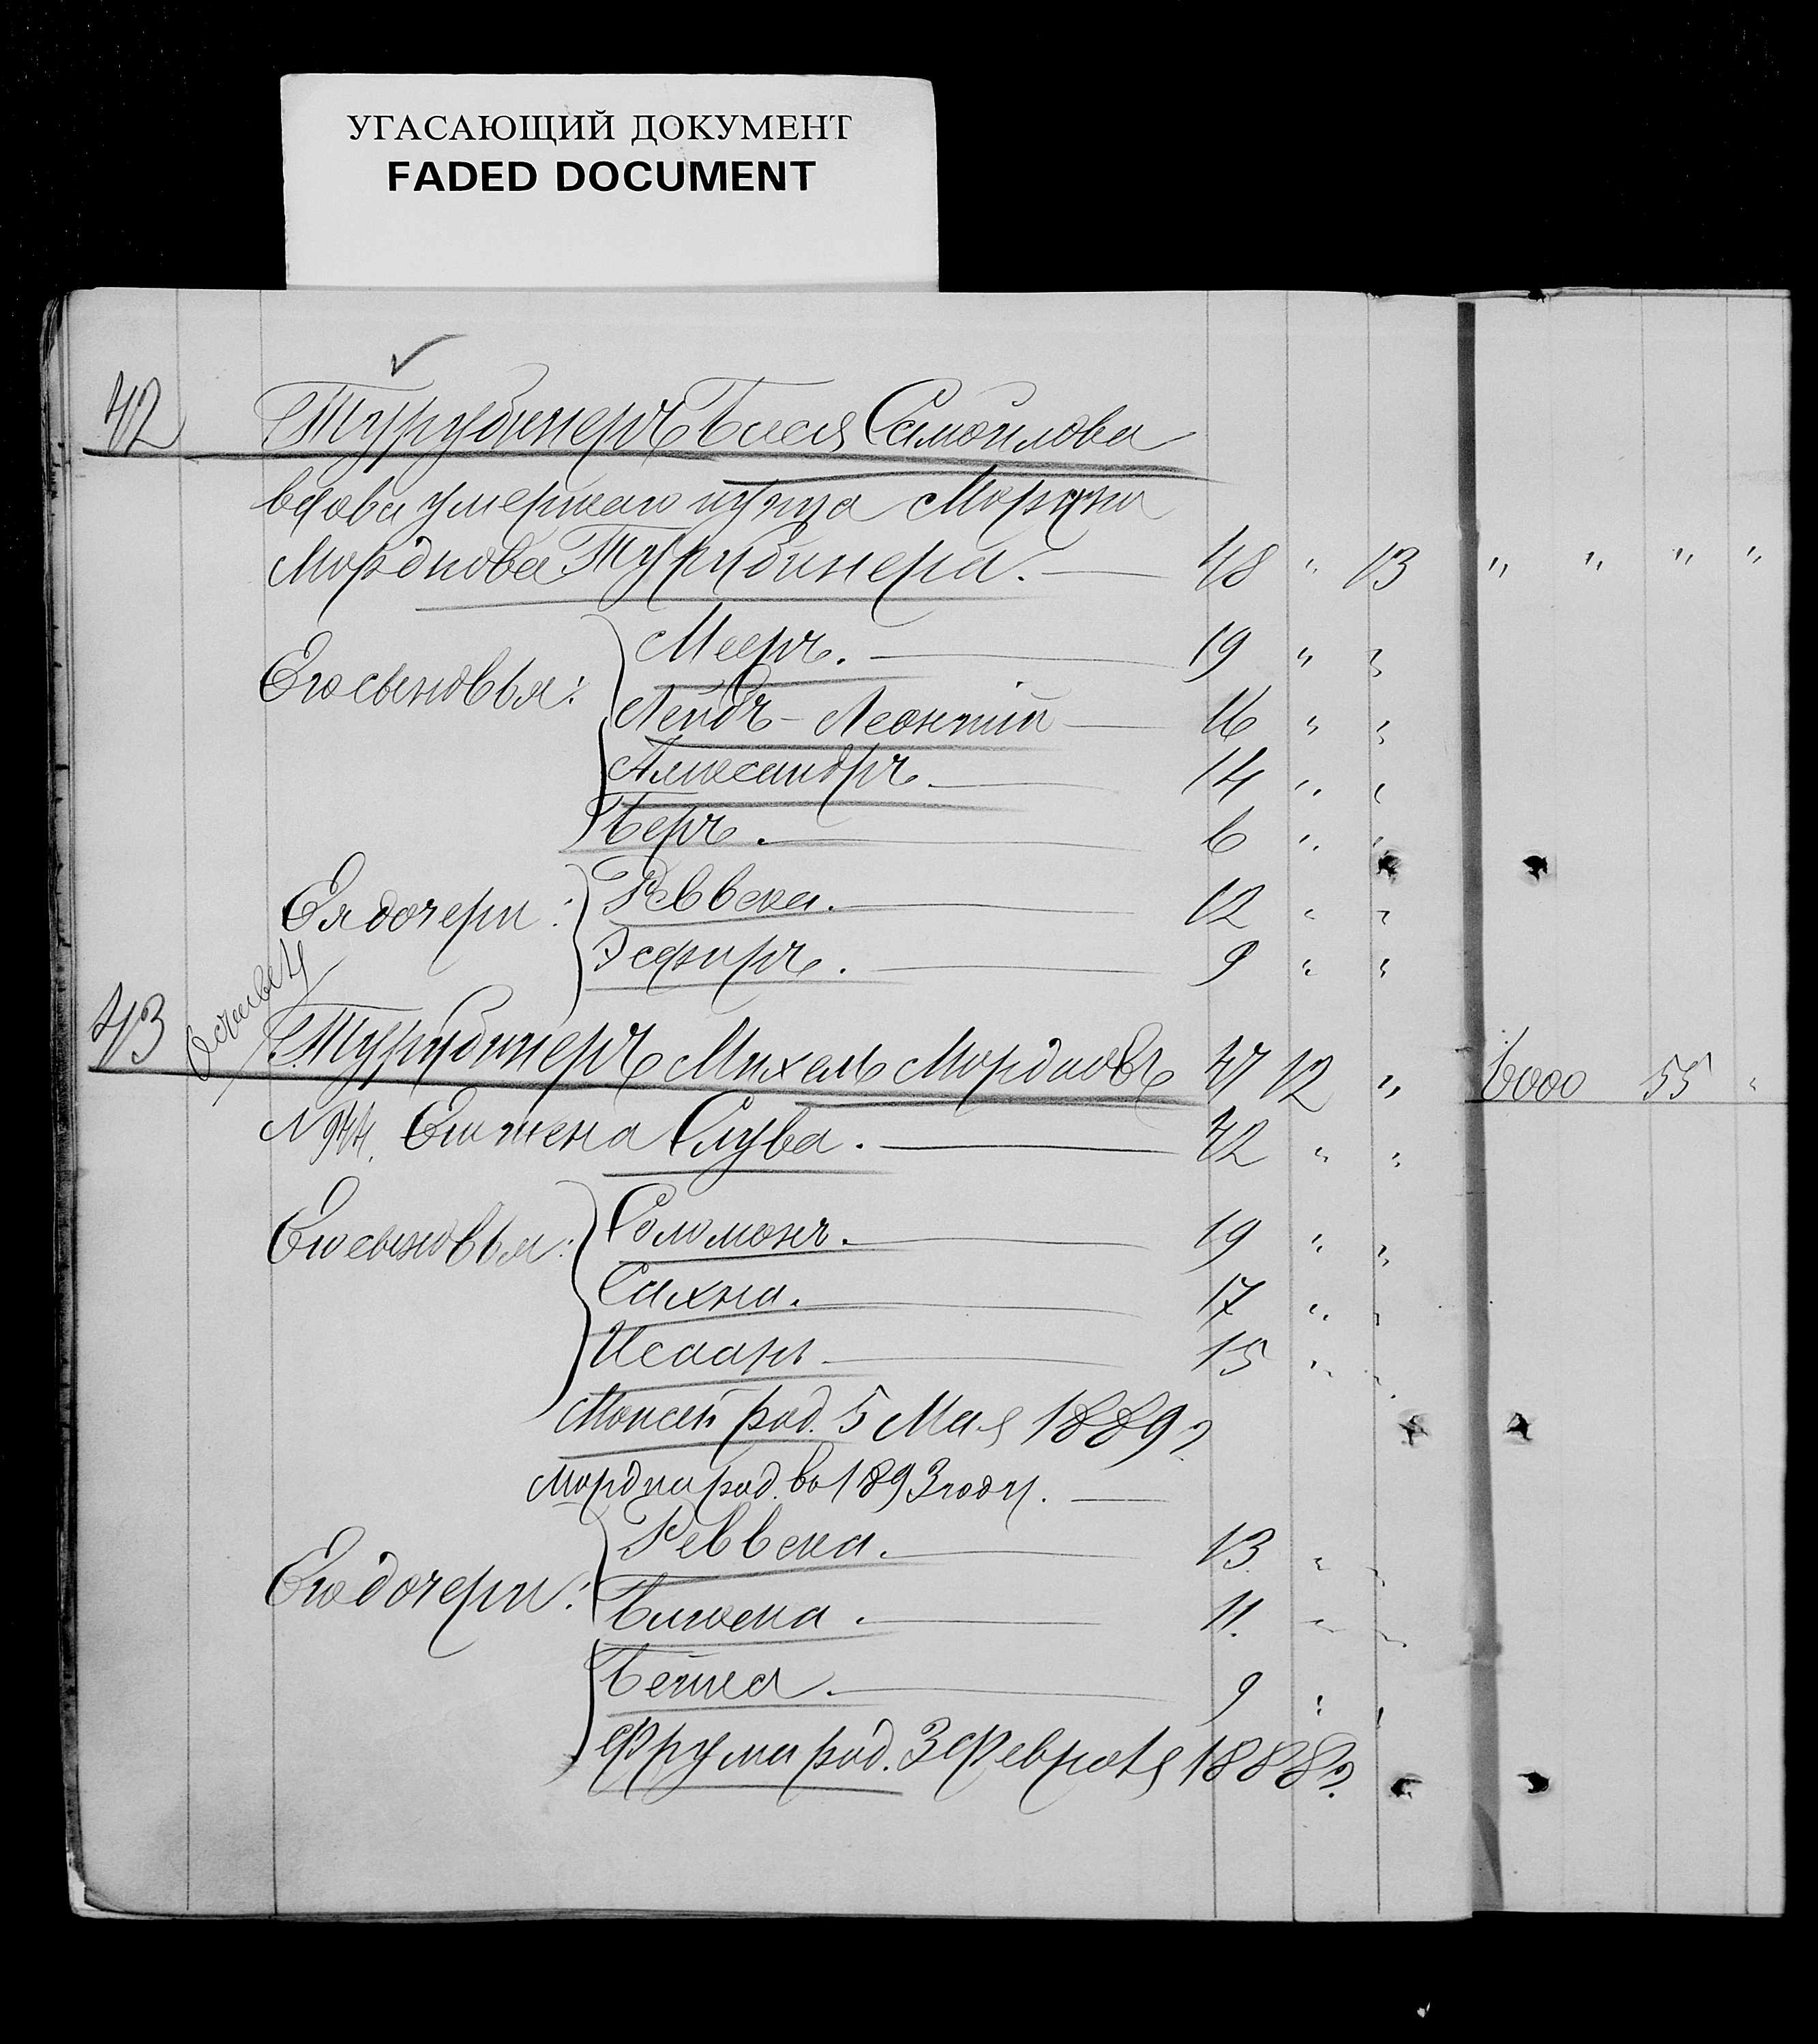 УГАСАЮЩИЙ ДОКУМЕНТ
FADED DOCUMENT
42 Турубинеръ Бася Самойлова
вдова умершаго купца
Мордкова Турубинера. 48 " 13 " " " "
Его сыновья: Мееръ. 19 " "
Лейбъ-Леонтій 16 " "
Александръ 14 " "
Беръ. 6 " "
Ея дочери: Реввека. 12 " "
Эсфирь. 9 " "
43 Турубинеръ Михель Мордковъ 47 12 " 6000 55 "
N 944. Его жена Слува. 42 " "
Его сыновья: Соломонъ. 19 " "
Сахна. 17 " "
Исаакъ 15 " "
Моисей род. 5 Мая 1889 г.
Мордка род. въ 1893 году.
Его дочери: Реввека. 13. " "
11. " "
Бейла. 9 " "
Фрума род. 3 Февраля 1888 г.